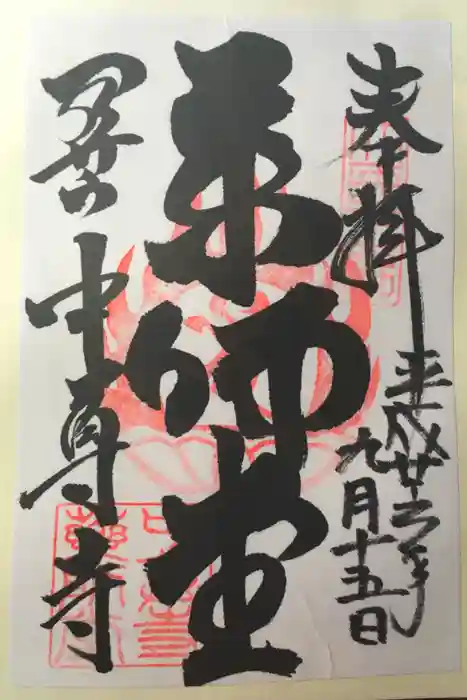 奉拝
平成廿三年
九月十五日
薬師堂
中尊寺